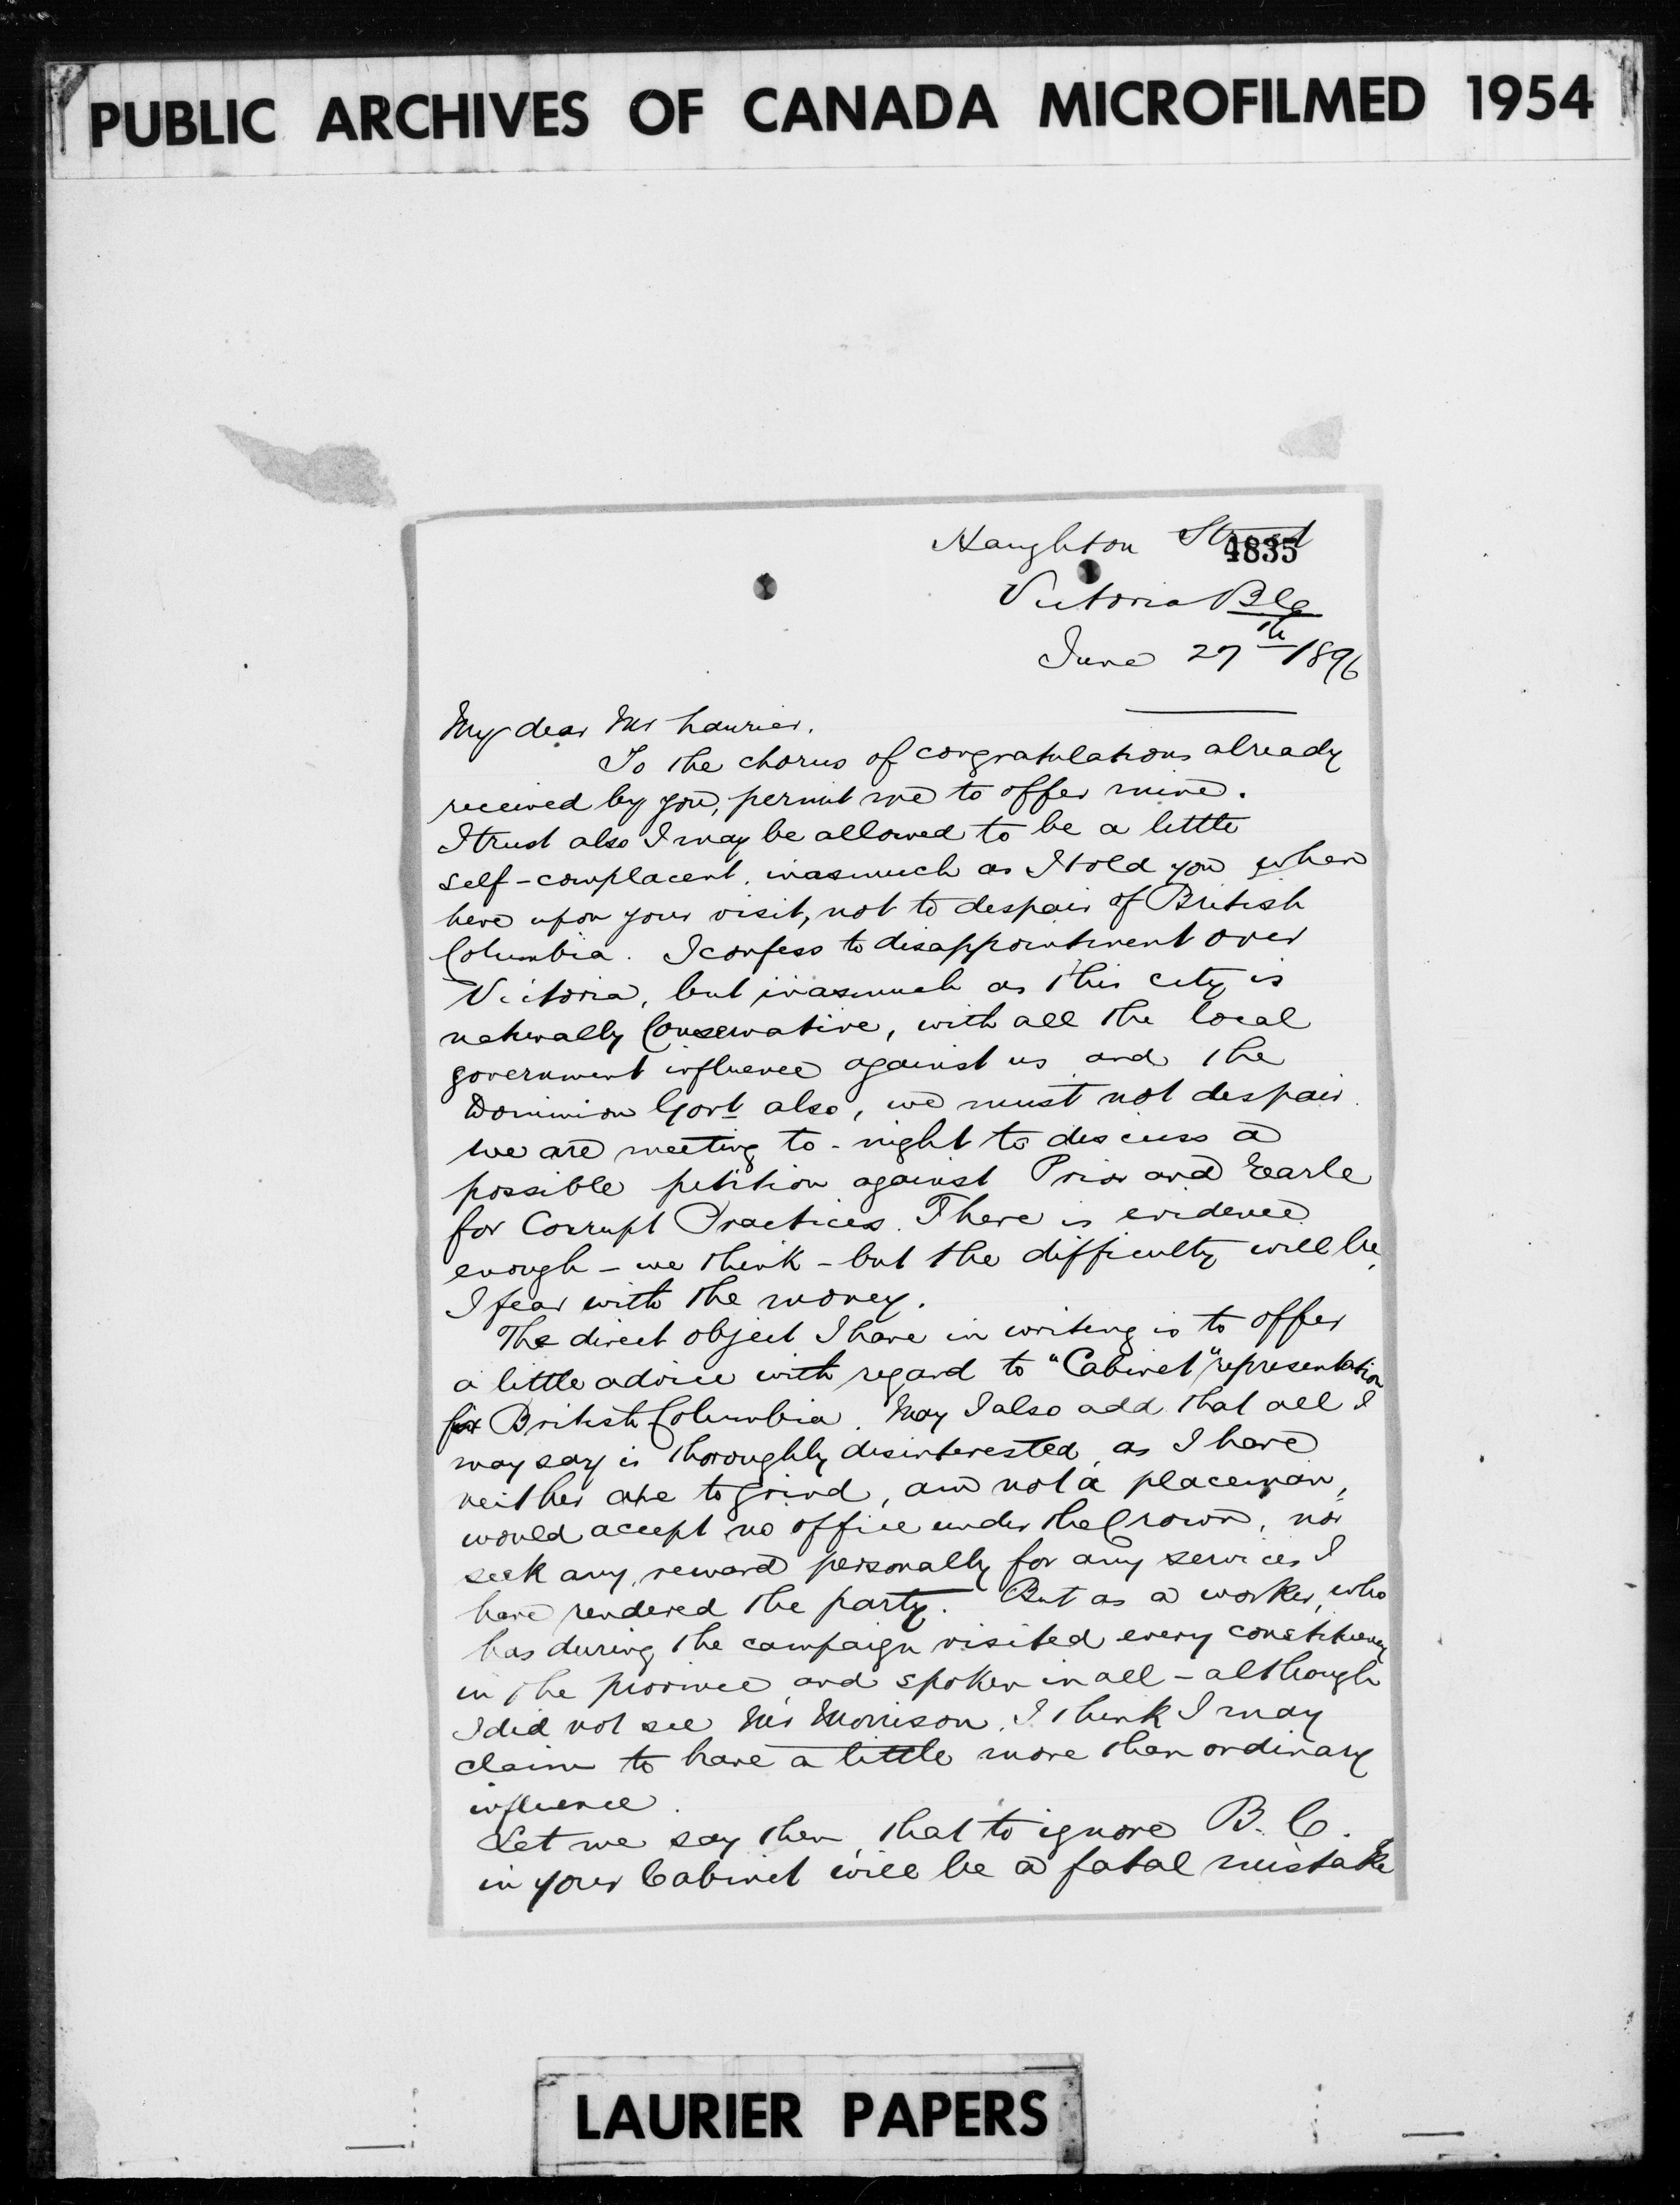 PUBLIC ARCHIVES OF CANADA MICROFILMED 1954
Haughton Street
4835
Victoria B C
June 27th 1896
My dear Mr Laurier.
To the chorus of congratulations already
received by you, permit me to offer mine.
I trust also I may be allowed to be a little
self-complacent, inasmuch as I told you when
here upon your visit, not to despair of British
Columbia. I confess to disappointment over
Victoria, but inasmuch as this city is
naturally Conservative, with all the local
government influence against us and the
Dominion Govt also, we must not despair.
We are meeting to-night to discuss a
possible petition against Prior and Earle
for Corrupt Practices. There is evidence
enough - we think - but the difficulty will be,
I fear with the money.
The direct object I have in writing is to offer
a little advice with regard to "Cabinet" representation
for British Columbia. May I also add that all I
may say is thoroughly disinterested, as I have
neither axe to grind, am not a placeman,
would accept no office under the Crown, nor
seek any reward personally for any services I
have rendered the party. But as a worker, who
has during the campaign visited every constituency
in the province and spoken in all - although
I did not see Mr Morrison, I think I may
claim to have a little more than ordinary
influence.
Let me say then, that to ignore B. C.
in your Cabinet will be a fatal mistake
LAURIER PAPERS